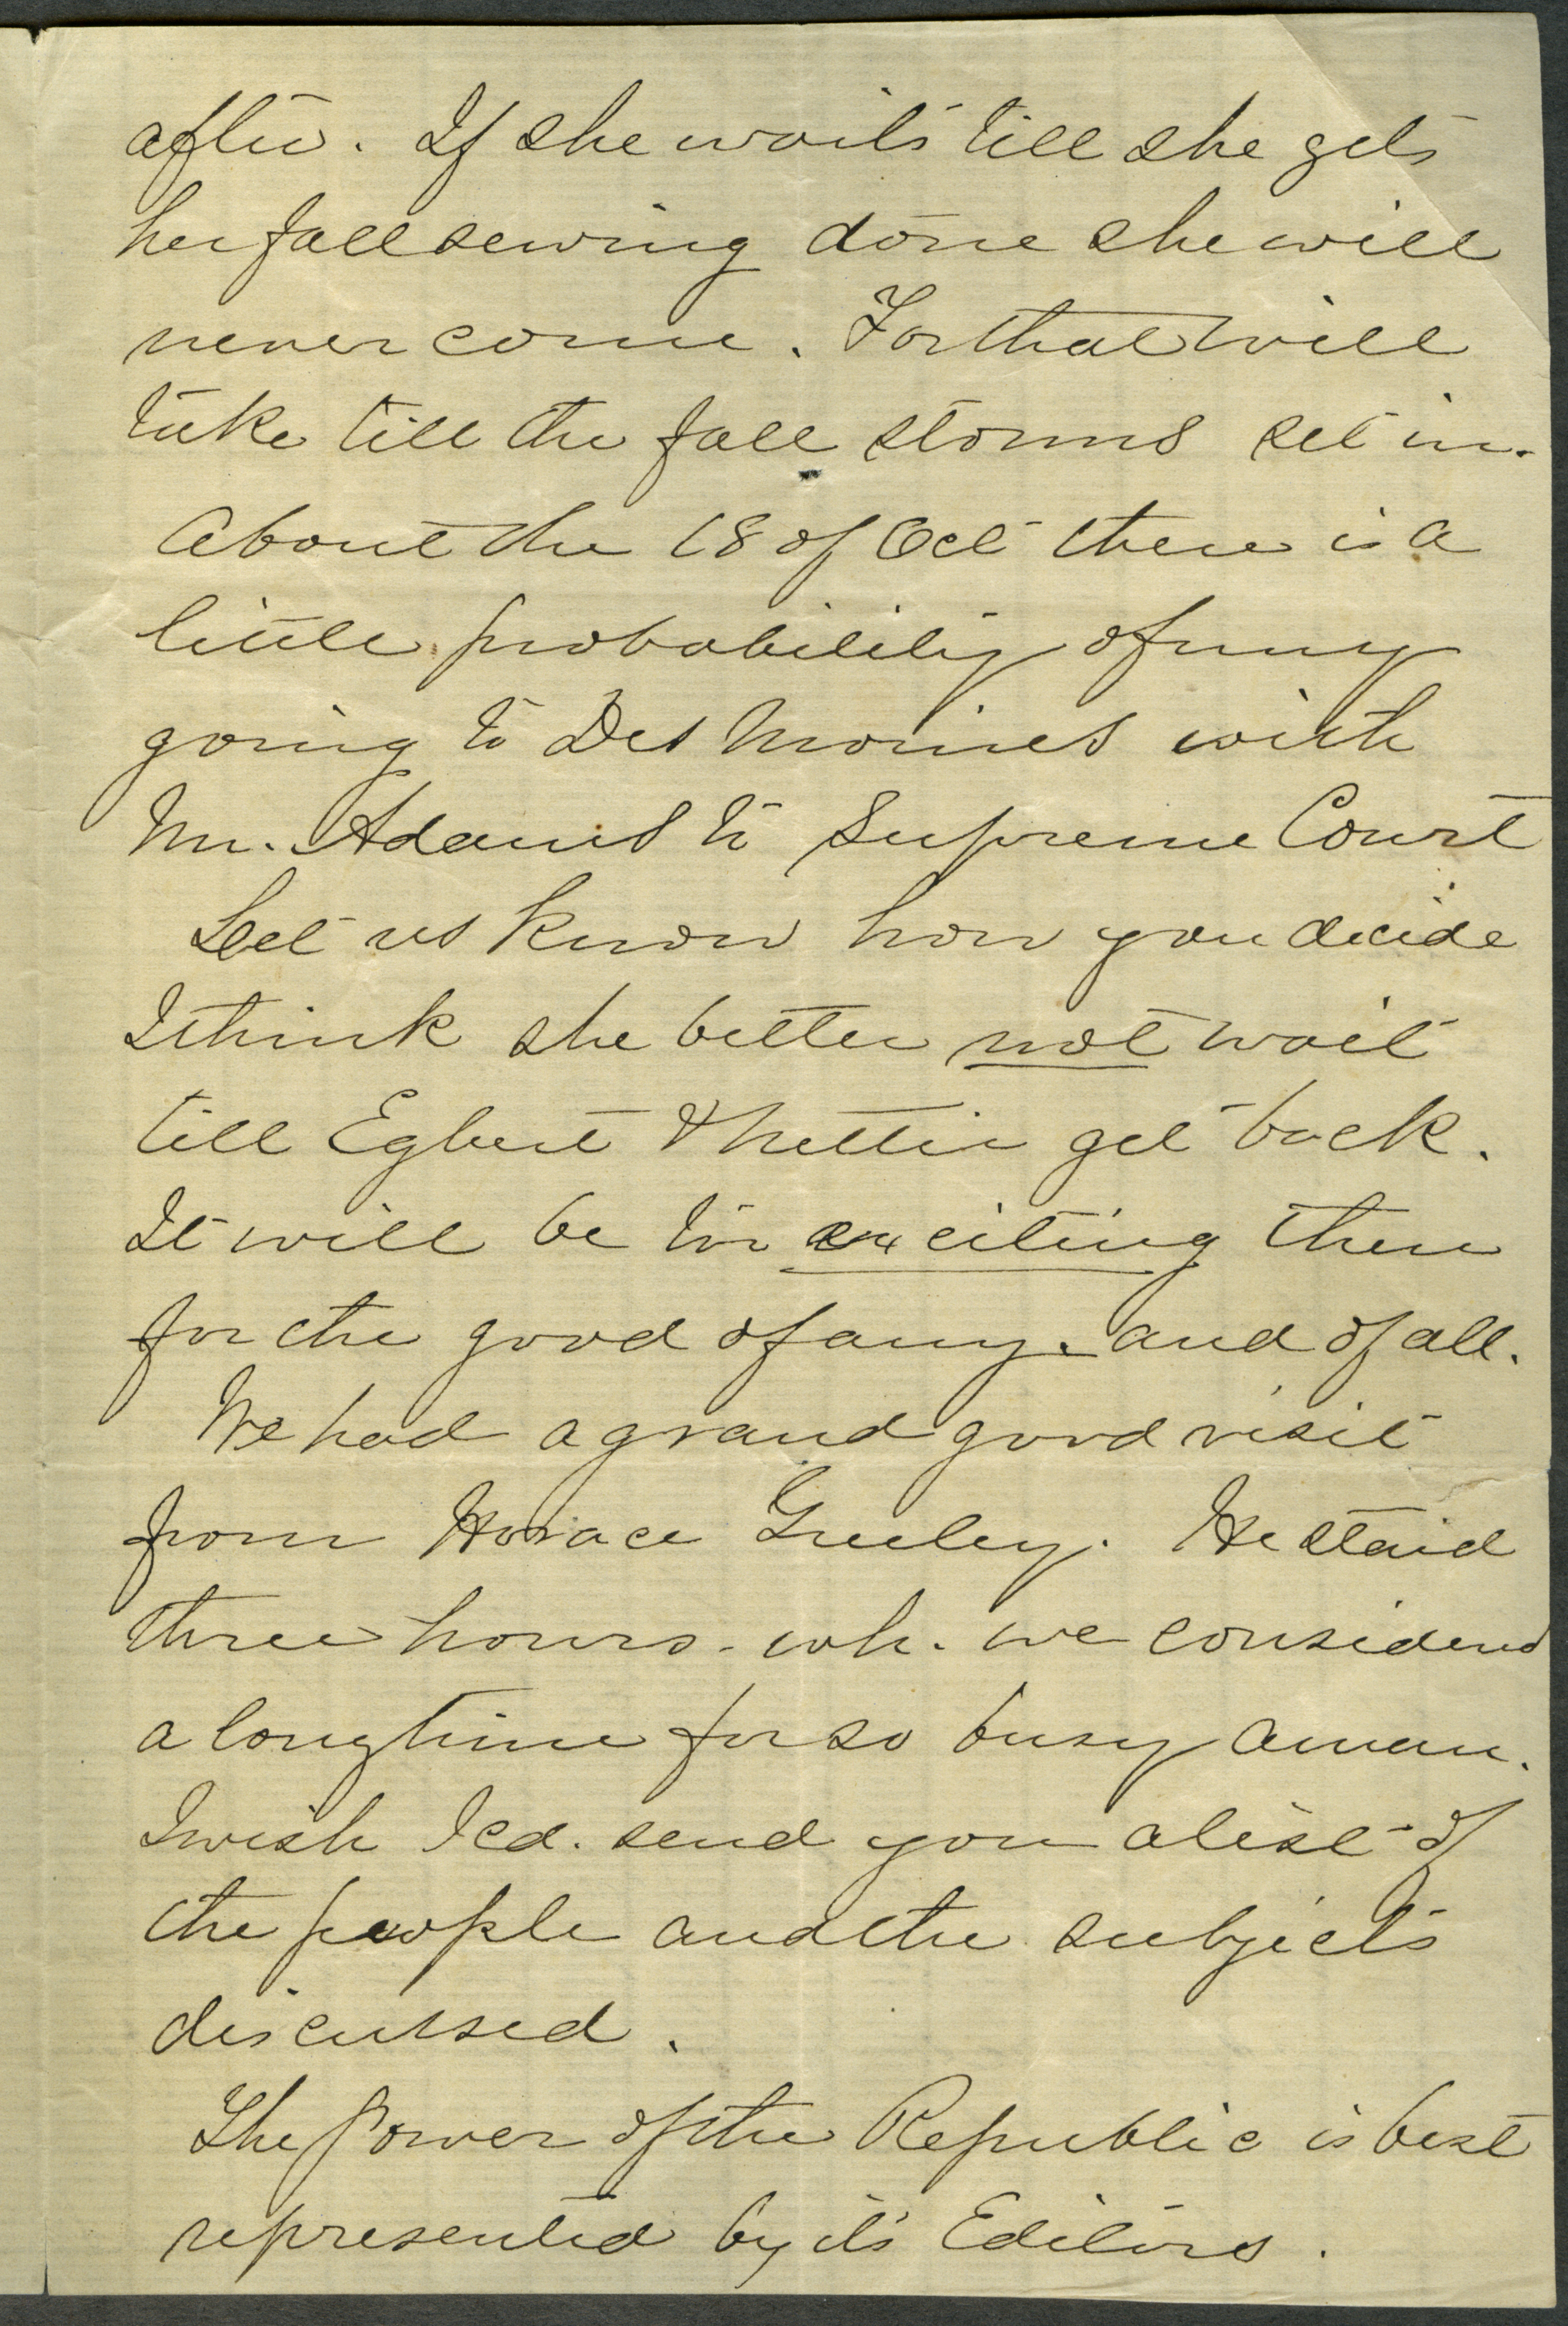 after. If she waits till she gets
her fall sewing done she will
never come. For that will
take till the fall storms set in.
About the 18 of Oct there is a
little probability of my
going to Des Moines with
Mr. Adams to Supreme Court
Let us know how you decide
I think she better not wait
till Egbert & Nettie get back.
It will be too exciting then
for the good of any. and of all.
We had a grand good visit
from Horace Greeley. He staid
three hours - wh. we considered
a long time for so busy a man.
I wish I cd. send you a list of
the people and the subjects
discussed.
The Power of the Republic is best
represented by its Editors.